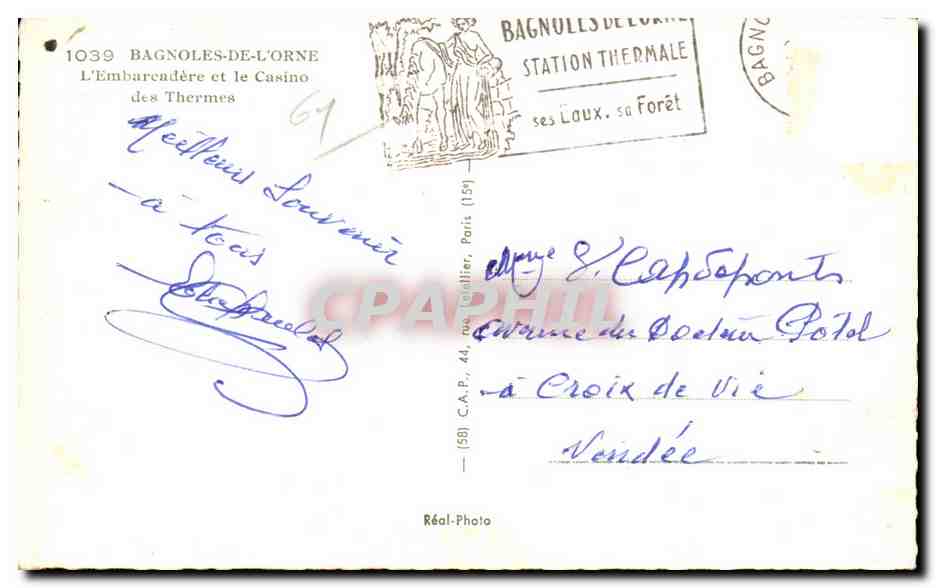 1039 BAGNOLES-DE-L'ORNE
L'Embarcadère et le Casino
des Thermes
61
BAGNOLES DE L'ORNE
STATION THERMALE
ses Eaux. sa Forêt
BAGNO
Meilleurs Souvenir
à tous
Mme S. Capdeponts
avenue du Docteur Potel
à Croix de Vie
Vendée
— (58) C.A.P., 44, rue Letellier, Paris (15e) —
CPAPHIL
Réal-Photo